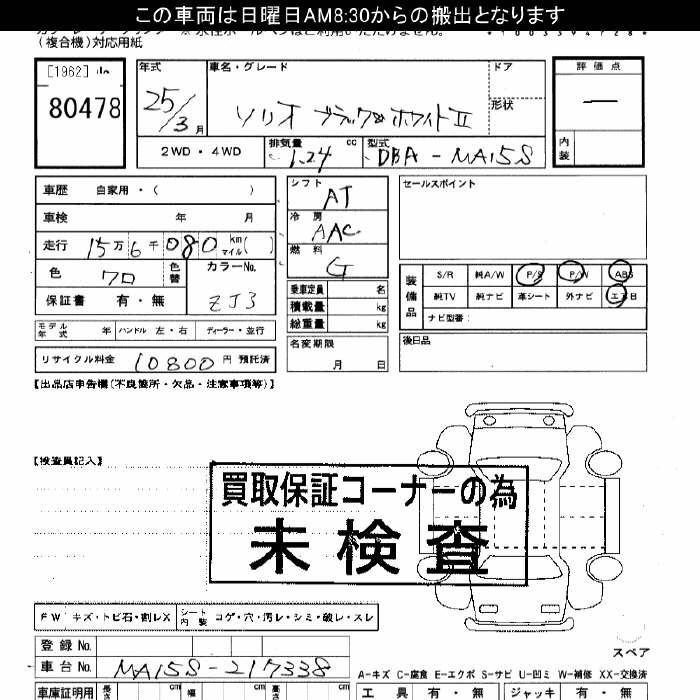 この車両は日曜日AM8:30からの搬出となります
(複合機)対応用紙
[1962]
80478
年式
25/3月
車名・グレード
ソリオ ブラック&ホワイトII
ドア
形状
評価点
内装
2WD・4WD
排気量
1.24 cc
型式
DBA-MA15S
車歴 自家用・( )
車検 年 月
走行 15万6千080 km マイル( )
色 クロ 色替
カラーNo. ZJ3
保証書 有・無
モデル年式 年 ハンドル 左・右 ディーラー・並行
リサイクル料金 10800円 預託済
シフト
AT
冷房
AAC
燃料
G
乗車定員 名
積載量 kg
総重量 kg
名変期限
月 日
セールスポイント
装備品
S/R 純A/W P/S P/W ABS
純TV 純ナビ 革シート 外ナビ エアB
ナビ型番:
後日品
【出品店申告欄(不良箇所・欠品・注意事項等)】
【検査員記入】
買取保証コーナーの為
未検査
FW キズ・トビ石・割レX
シート内装 コゲ・穴・汚レ・シミ・破レ・スレ
登録No.
車台No. MA15S-217338
車庫証明用 長さ cm 幅 cm 高さ cm
スペア
A-キズ C-腐食 E-エクボ S-サビ U-凹ミ W-補修 XX-交換済
工具 有・無 ジャッキ 有・無